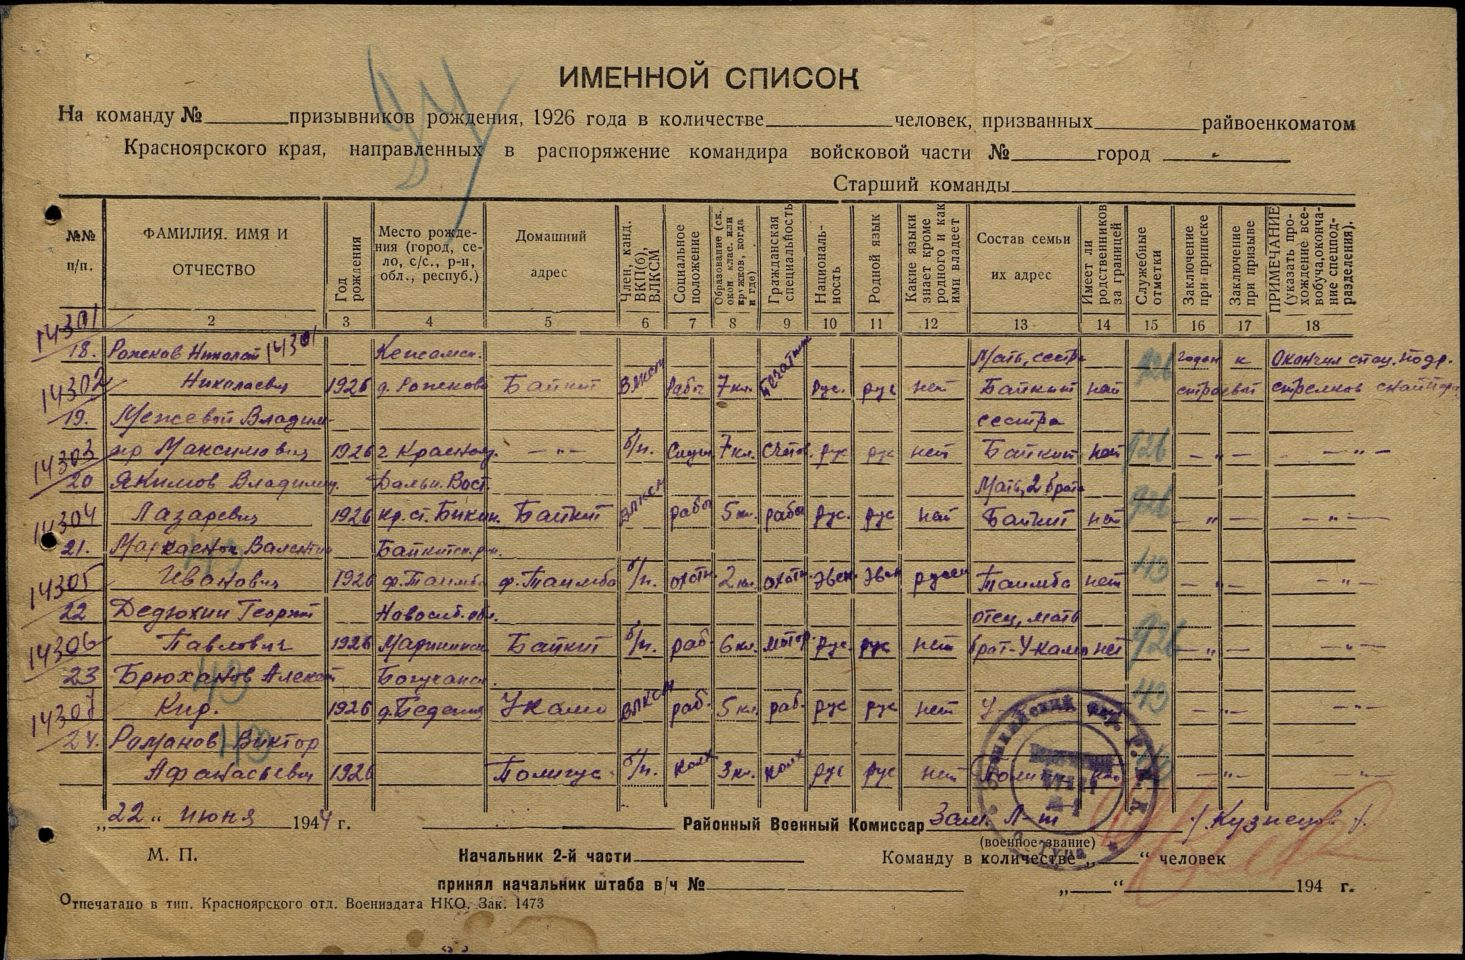 ИМЕННОЙ СПИСОК
На команду № призывников рождения, 1926 года в количестве человек, призванных райвоенкоматом
Красноярского края, направленных в распоряжение командира войсковой части № город
Старший команды
№№ п/п.
ФАМИЛИЯ. ИМЯ И ОТЧЕСТВО
Год рождения
Место рождения (город, село, с/с., р-н, обл., республ.)
Домашний адрес
Член, канд. ВКП(б), ВЛКСМ
Социальное положение
Образование (ск. окон. клас. или кружков, когда и где)
Гражданская специальность
Националь-ность
Родной язык
Какие языки знает кроме родного и как ими владеет
Состав семьи их адрес
Имеет ли родственников за границей
Служебные отметки
Заключение при приписке
Заключение при призыве
ПРИМЕЧАНИЕ (указать прохождение всевобуча, окончание спецподразделения).
2 3 4 5 6 7 8 9 10 11 12 13 14 15 16 17 18
14301
18. Рожков Николай 14301 Кежемск. Мать, сестра 926 годен к Окончил стац. подр.
14302 Николаевич 1926 д. Рожково Байкит ВЛКСМ рабоч 7 кл. рус. рус нет Байкит нет строевой стрелков снайпер
19. Межевой Владим- сестра
14303 ир Максимович 1926 г. Краснояр. — „ — б/п. 7 кл. счетов. рус рус нет Байкит нет 926 — „ — — „ —
20 Якимов Владимир. Дальн. Вост. Мать, 2 брата
14304 Лазаревич 1926 кр. ст. Бикин. Байкит ВЛКСМ рабоч 5 кл. рабоч рус. рус нет Байкит нет 926 — „ — — „ —
21. Валентин Байкитск. р-н.
14305 Иванович 1926 ф. Таимба ф. Таимба б/п. охотн 2 кл. охотн. эвен. эвен русск Таимба нет 413 — „ — — „ —
22 Дедюхин Георгий Новосиб. обл. отец, мать
14306 Павлович 1926 Мариинск Байкит б/п. раб. 6 кл. мотор. рус. рус нет брат-Укамо нет 926 — „ — — „ —
23 Брюханов Алексей Богучанск.
14307 Кир. 1926 Укамо ВЛКСМ раб. 5 кл. раб. рус рус нет У 413 — „ — — „ —
24. Романов Виктор
Афанасьевич 1926 Полигус б/п. колх 3 кл. колх рус рус нет Полиг — „ — — „ —
„ 22 “ июня 1944 г. Районный Военный Комиссар Зам. Л-т / Кузнецов /.
(военное звание)
М. П. Начальник 2-й части Команду в количестве „ “ человек
принял начальник штаба в/ч № „ “ 194 г.
Отпечатано в тип. Красноярского отд. Воениздата НКО. Зак. 1473